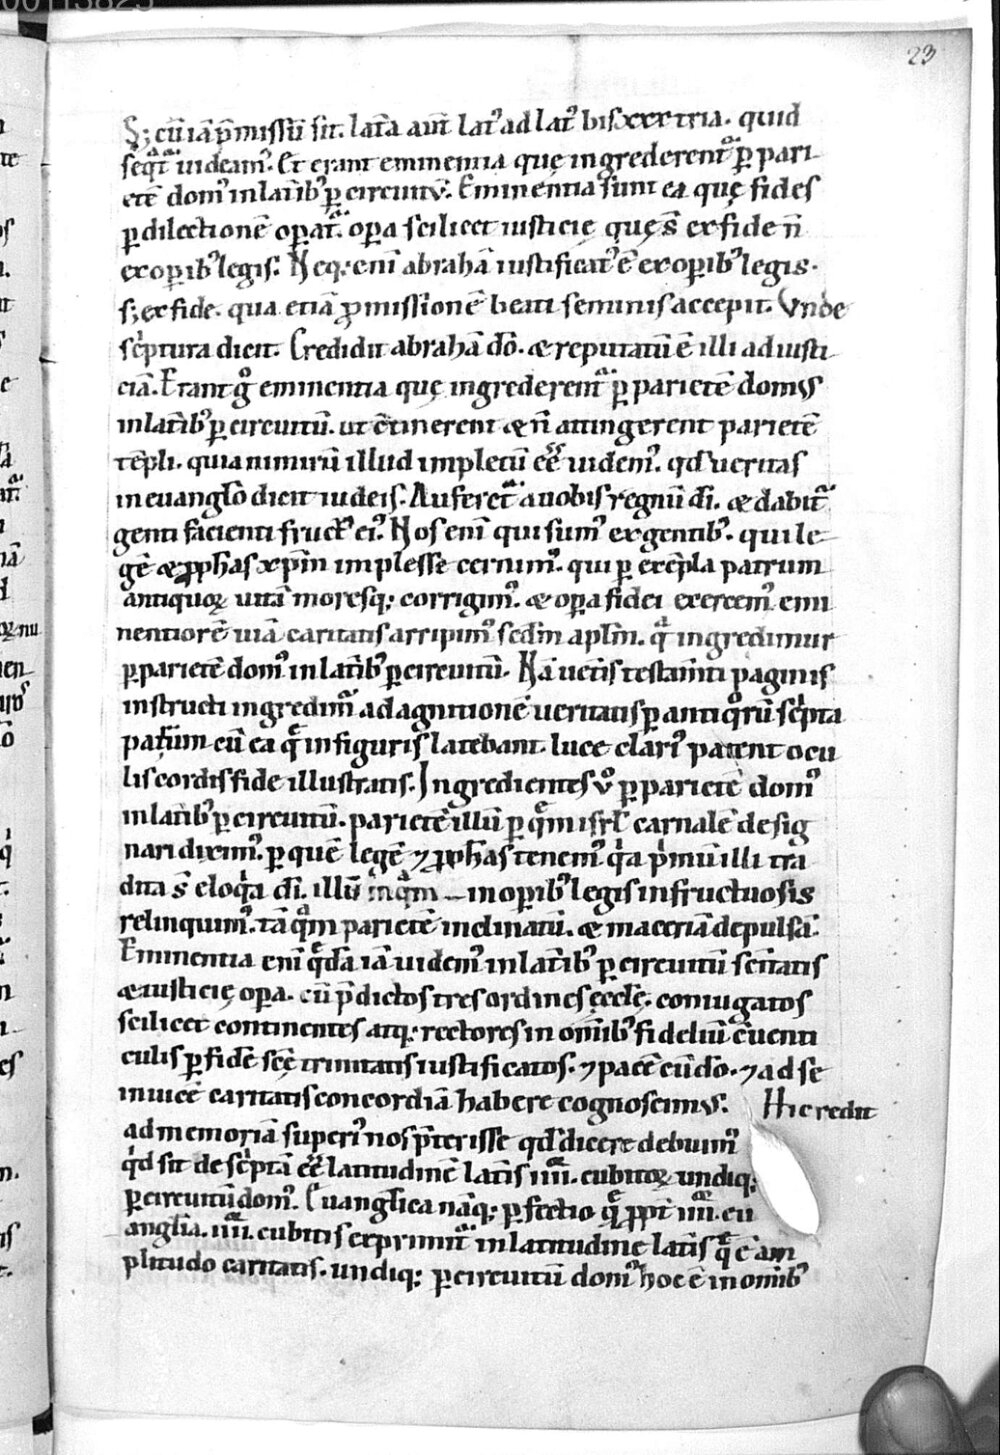 00113825
23
S; cū iā p̄missū sit. lat̄a aut̄ lat᾽ ad lat᾽ bis xxx tria. quid
seq̄t᾽ uideam᾽. Et erant eminentia quę ingrederent᾽ ꝑ pari
etē dom᾽ in lat̄ib᾽ ꝑ circuitū. Eminentia sunt ea quę fides
ꝑ dilectionē oꝑat᾽. oꝑa scilicet iusticię quę s̄ ex fide n̄
ex oꝑib᾽ legis. Neq; eni᷎ abrahā iustificat᾽ ē ex oꝑib᾽ legis.
s; ex fide. qua etiā ꝓmissionē beati seminis accepit. Vnde
sc̄ptura dicit. Credidit abrahā dō. & reputatū ē illi ad iusti
ciā. Erant g᾽ eminentia quę ingrederent᾽ ꝑ parietē domus
in lat̄ib᾽ ꝑ circuitū. ut c̄tinerent & n̄ attingerent parietē
tēpli. quia nimirū illud impletū eē uidem᾽. qd᾽ ueritas
in euanglō dicit iudeis. Auferet᾽ a uobis regnū dī. & dabit᾽
genti facienti fruct᾽ ei᾽. Nos eni᷎ qui sum᾽ ex gentib᾽. qui le
gē & ꝓphas xp̄m implesse cernim᾽. qui ꝑ exēpla patrum
antiquoꝝ uitā moresq; corrigim᾽. & oꝑa fidei exercem᾽ emi
nentiorē uiā caritatis arripim᾽ sedm̄ aplm̄. q̄ ingredimur
ꝑ parietē dom᾽ in lat̄ib᾽ ꝑ circuitū. Nā uet̄is testam̄ti paginis
instructi ingredim᾽ ad agnitionē ueritatis ꝑ antiq᾽rū sc̄pta
patrum cū ea q̄ in figuris latebant. luce clari᾽ patent ocu
lis cordis fide illustratis. Ingredientes v᾽ ꝑ parietē dom᾽
in lat̄ib᾽ ꝑ circuitū. parietē illū ꝑ q̄m isrl᾽ carnalē desig
nari dixim᾽. ꝑ quē legē ⁊ ꝓphas tenem᾽ q̄a p̄mū illi tra
dita s̄ eloq̄a dī. illū inq̄m in oꝑib᾽ legis infructuosis
relinquim᾽. tā q̄m parietē inclinatū. & maceriā depulsā.
Eminentia eni᷎ q̄dā iā uidem᾽ in lat̄ib᾽ ꝑ circuitū sc̄itatis
& iusticię oꝑa. cū p̄dictos tres ordines ęcclę. coniugatos
scilicet continentes atq; rectores in om̄ib᾽ fideliū c̄uenti
culis ꝑ fidē scē trinitatis iustificatos. ⁊ pacē cū dō. ⁊ ad se
inuicē caritatis concordiā habere cognoscimus. Hic redit
ad memoriā superi᾽ nos p̄terisse qd᾽ dicere debuim᾽
q̄d sit de sc̄ptā eē latitudinē lat̄is iiii. cubitoꝝ undiq;
ꝑ circuitū dom᾽. Euanglica nāq; ꝑfectio q̄ ꝓpt᾽ iiii. eu
anglia. iiii. cubitis exprimit᾽ in latitudine lat̄is q̄ ē am
plitudo caritatis. undiq; ꝑ circuitū dom᾽ hoc ē in om̄ib᾽